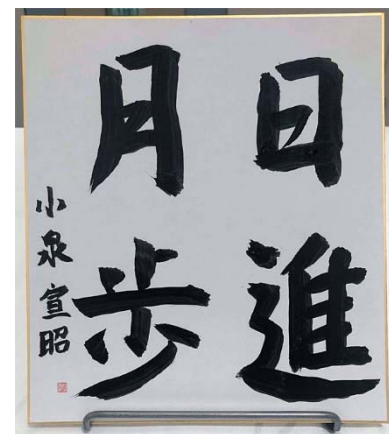 日進
月歩
小泉宣昭